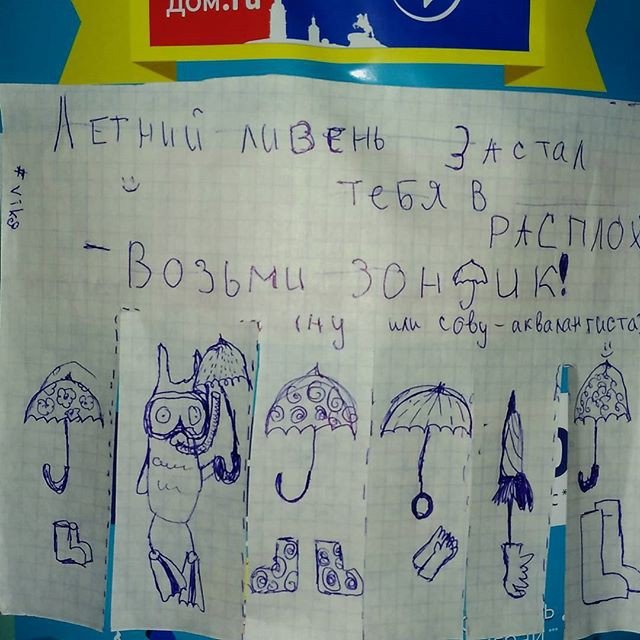 ДОМ.ru
ЛЕТНИЙ ЛИВЕНЬ ЗАСТАЛ
ТЕБЯ В
РАСПЛОХ
#vika
- ВОЗЬМИ ЗОНТИК!
(НУ или сову-аквалангиста)